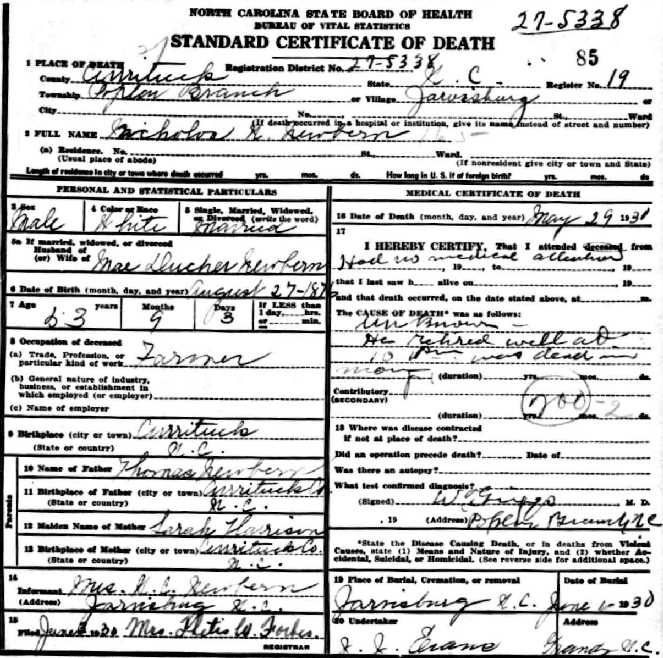 NORTH CAROLINA STATE BOARD OF HEALTH
BUREAU OF VITAL STATISTICS
27-5338
STANDARD CERTIFICATE OF DEATH
85
1 PLACE OF DEATH
Registration District No. 27-5338
County Currituck State N. C. Register No. 19
Township Poplar Branch or Village Jarvisburg or
City No. St., Ward
(If death occurred in a hospital or institution, give its name instead of street and number)
2 FULL NAME Nicholas Newbern
(a) Residence. No. St., Ward.
(Usual place of abode) (If nonresident give city or town and State)
Length of residence in city or town where death occurred yrs. mos. ds. How long in U. S. if of foreign birth? yrs. mos. ds.
PERSONAL AND STATISTICAL PARTICULARS
3 Sex
Male
4 Color or Race
White
5 Single, Married, Widowed, or Divorced (write the word)
Married
5a If married, widowed, or divorced
Husband of
(or) Wife of Mae Newbern
6 Date of Birth (month, day, and year) August 27-1876
7 Age
53
Months
9
Days
3
If LESS than
1 day, hrs.
or min.
8 Occupation of deceased
(a) Trade, Profession, or
particular kind of work Farmer
(b) General nature of industry,
business, or establishment in
which employed (or employer)
(c) Name of employer
9 Birthplace (city or town) Currituck
(State or country) N. C.
Parents
10 Name of Father Thomas Newbern
11 Birthplace of Father (city or town) Currituck Co.
(State or country) N. C.
12 Maiden Name of Mother Sarah Harrison
13 Birthplace of Mother (city or town) Currituck Co.
(State or country) N. C.
14
Informant Mrs. N. Newbern
(Address) Jarvisburg N. C.
15
Filed June 1930 Mrs. W. Forbes.
REGISTRAR
MEDICAL CERTIFICATE OF DEATH
16 Date of Death (month, day, and year) May 29 1930
17
I HEREBY CERTIFY, That I attended deceased from
Had no medical attention
, 19 , to , 19
that I last saw h alive on , 19
and that death occurred, on the date stated above, at m.
The CAUSE OF DEATH* was as follows:
Unknown -
He retired well at
10 Pm was dead in
morn
(duration) yrs. mos. ds.
Contributory
(SECONDARY)
200-2
(duration) yrs. mos. ds.
18 Where was disease contracted
if not at place of death?
Did an operation precede death? Date of
Was there an autopsy?
What test confirmed diagnosis?
(Signed) W T Griggs M. D.
, 19 (Address) Poplar Branch N C
*State the Disease Causing Death, or in deaths from Violent
Causes, state (1) Means and Nature of Injury, and (2) whether Ac-
cidental, Suicidal, or Homicidal. (See reverse side for additional space.)
19 Place of Burial, Cremation, or removal Date of Burial
Jarvisburg N. C. June 1- 1930
20 Undertaker Address
Evans Grandy N. C.